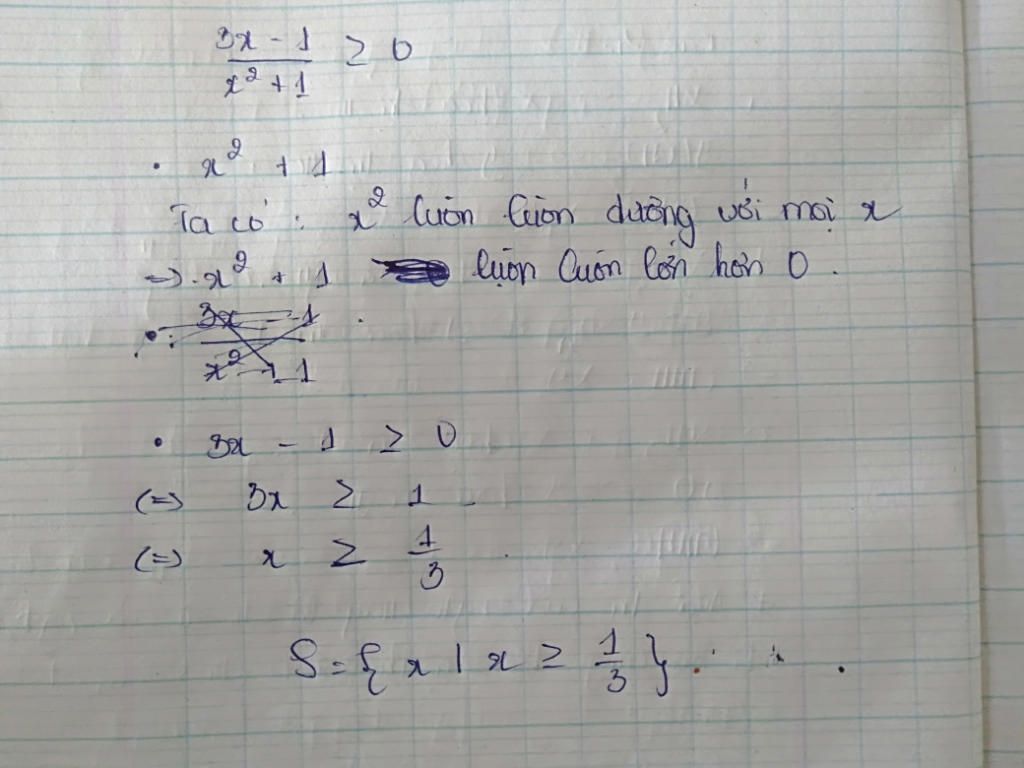 3x - 1 / x² + 1 ≥ 0
• x² + 1
Ta có : x² luôn luôn dương với mọi x
=> x² + 1 luôn luôn lớn hơn 0.
3x - 1
x² - 1
• 3x - 1 ≥ 0
(=) 3x ≥ 1
(=) x ≥ 1/3
S = { x | x ≥ 1/3 }